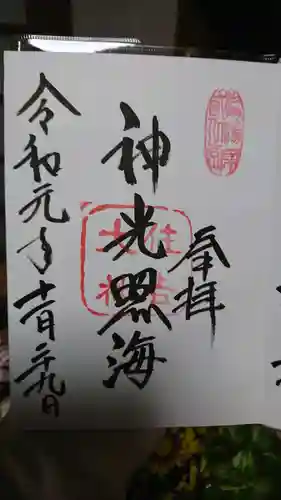 奉拝
神光照海
住吉
大社
令和元年十一月二十九日